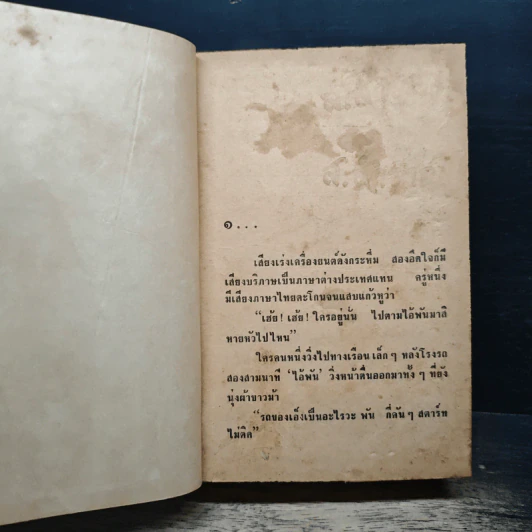 ๑...
เสียงเร่งเครื่องยนต์ดังกระหึ่ม สองอึดใจก็มี
เสียงบริภาษเป็นภาษาต่างประเทศแทน ครู่หนึ่ง
มีเสียงภาษาไทยตะโกนจนแสบแก้วหูว่า
“เฮ้ย! เฮ้ย! ใครอยู่นั่น ไปตามไอ้พันมาสิ
หายหัวไปไหน”
ใครคนหนึ่งวิ่งไปทางเรือนเล็กๆ หลังโรงรถ
สองสามนาที ‘ไอ้พัน’ วิ่งหน้าตื่นออกมาทั้งๆ ที่ยัง
นุ่งผ้าขาวม้า
“รถของเอ็งเป็นอะไรวะ พัน กี่ดันๆ สตาร์ท
ไม่ติด”